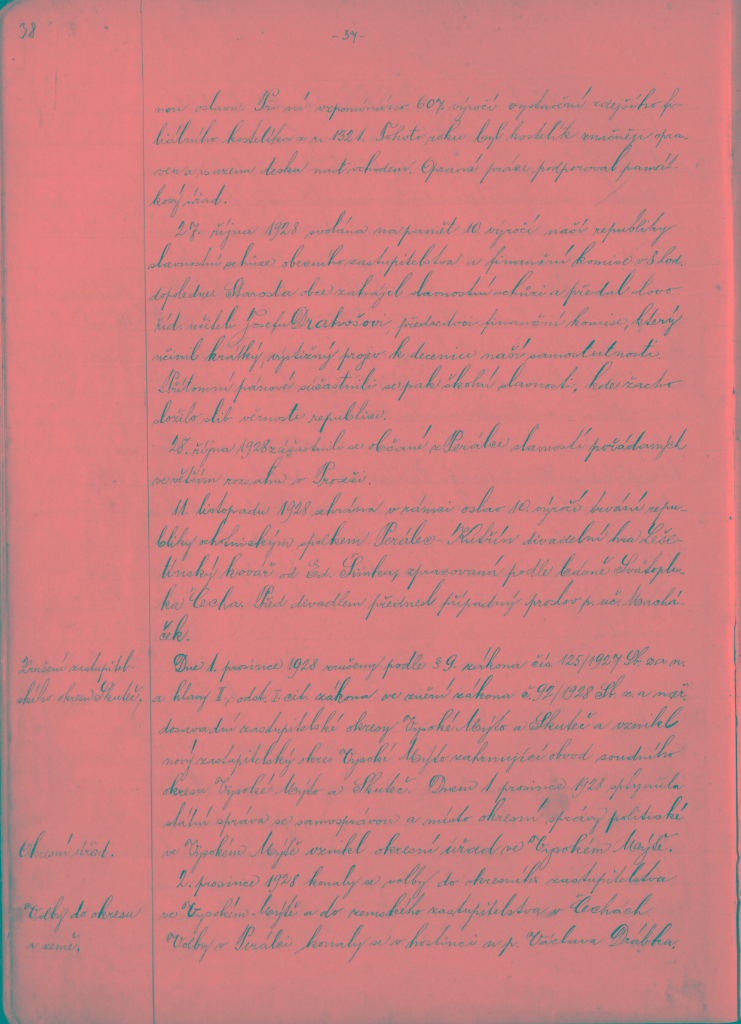 38
- 37 -
nou oslavu. Při ní vzpomínáno 607. výročí vystavění zdejšího fi-
liálního kostelíka z r. 1321. Tohoto roku byl kostelík zvenčí opra-
ven a vsazena deska nad vchodem. Opravné práce podporoval památ-
kový úřad.
27. října 1928 svolána na paměť 10. výročí naší republiky
slavnostní schůze obecního zastupitelstva a finanční komise v 8 hod.
dopoledne. Starosta obce zahájil slavnostní schůzi a předal slovo
říd. učiteli Josefu Drahošovi, předsedovi finanční komise, který
učinil krátký, výstižný projev k decenice naší samostatnosti.
Přítomní pánové súčastnili se pak školní slavnosti, kde žactvo
složilo slib věrnosti republice.
28. října 1928 zúčastnili se občané z Perálce slavností pořádaných
ve větším rozsahu v Proseči.
11. listopadu 1928 sehrána v rámci oslav 10. výročí trvání repu-
bliky ochotnickým spolkem Perálec-Kutřín divadelní hra Leše-
tínský kovář od Ed. zpracovaná podle básně Svatoplu-
ka Čecha. Před divadlem přednesl případný proslov p. uč. Machá-
ček.
Zrušení zastupitel-
ského okresu Skuteč,
Dne 1. prosince 1928 zrušeny podle § 9. zákona čís. 125/1927 Sb. z. a n.
a hlavy I, odst. I cit. zákona ve znění zákona č. 92/1928 Sb. z. a nař.
dosavadní zastupitelské okresy Vysoké Mýto a Skuteč a vznikl
nový zastupitelský okres Vysoké Mýto zahrnující obvod soudního
okresu Vysoké Mýto a Skuteč. Dnem 1. prosince 1928 splynula
státní správa se samosprávou a místo okresní správy politické
Okresní úřad.
ve Vysokém Mýtě vznikl okresní úřad ve Vysokém Mýtě.
2. prosince 1928 konaly se volby do okresního zastupitelstva
Volby do okresu
a země.
ve Vysokém Mýtě a do zemského zastupitelstva v Čechách
Volby v Perálci konaly se v hostinci u p. Václava Drábka.